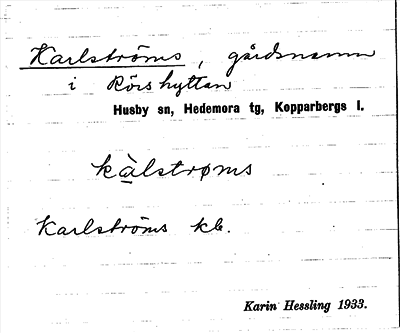 Karlströms, gårdsnamn
i Rörshyttan
Husby sn, Hedemora tg, Kopparbergs l.
kàlstrøms
Karlströms kb.
Karin Hessling 1933.